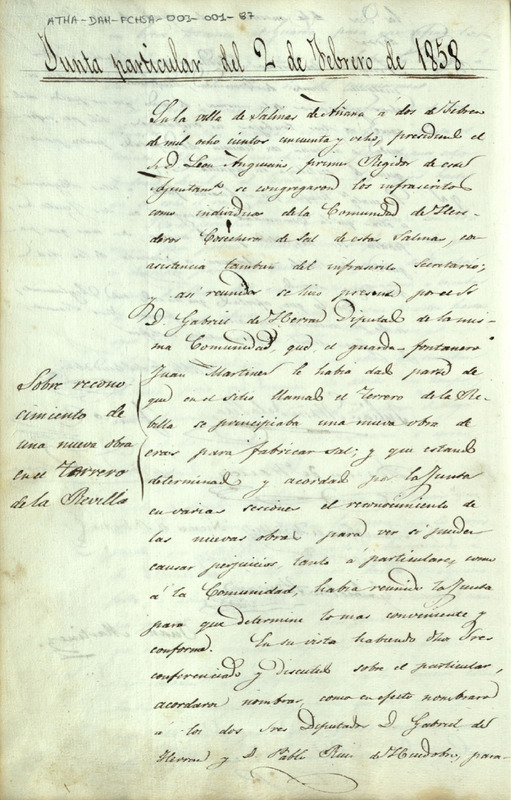 ATHA-DAH-FCHSA-003-001-87
Junta particular del 2 de Febrero de 1858
En la villa de Salinas de Añana a dos de Febrero
de mil ocho cientos cincuenta y ocho, presidiendo el
Sr. D. Leon Anguiano, primer Regidor de este
Ayuntamto. se congregaron los infrascritos
como individuos de la Comunidad de Here-
deros Cosecheros de Sal de estas Salinas, con
asistencia tambien del infrascrito Secretario;
y asi reunidos se hizo presente por el Sr.
D. Gabriel de Herran Diputado de la mis-
ma Comunidad, que el guarda fontanero
Juan Martinez le habia dado parte de
que en el sitio llamado el Terrero de la Re-
villa se principiaba una nueva obra de
eras para fabricar sal; y que estando
determinado y acordado por la Junta
en varias sesiones el reconocimiento de
las nuevas obras para ver si pueden
causar perjuicios tanto a particulares, como
á la Comunidad, habia reunido la Junta
para que determine lo mas conveniente y
conforme. En su vista habiendo dhos Sres
conferenciado y discutido sobre el particular,
acordaron nombrar, como en efecto nombraron
á los dos Sres Diputados D. Gabriel de
Herran y D. Pablo Ruiz de Huidobro, para
Sobre recono
cimiento de
una nueva obra
en el Terrero
de la Revilla